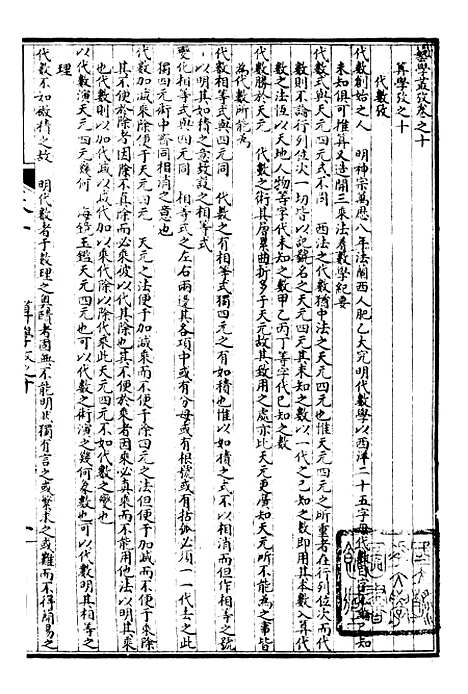 算學攷卷之十
算學攷之十
代數攷
代數創始之人 明神宗萬厯八年法蘭西人肥乙大完明代數學以西洋二十五字母代數
未知俱可推算又造開三乘法 有數學紀要
代數與天元四元式不同 西法之代數猶中法之天元四元也惟天元四元之所重者在行列位次而代
數則不論行列位次一切皆以記號名之天元四元其未知之數以一代之已知之數即用其本數入算代
數之法恆以天地人物等字代未知之數甲乙丙丁等字代已知之數
代數勝於天元 代數之術其層累曲折多于天元故其致用之處亦比天元更廣如天元所不能為之事皆
為代數所能為
代數相等式與四元同 代數之有相等式獨四元之有如積也惟以如積之式不以相消而但作相等之號
以明其如積之意故設之相等式
變化相等式與四元同 相等式之左右兩邊其各項中或有分母或有根號或有括弧必須一一代去之此
獨四元術中齊同相消之意也
代數加減乘除便于天元四元 天元之法便于加減乘而不便于除四元之法但便于加減而不便于乘除
其不便於除者因除不真除而必乘彼以代其除也其不便於乘者因乘必真乘而不能用他法以明其乘
也代數則以加代減以加代乘以乘代除以除代乘此天元四元不如代數之變也
以代數演天元四元幾何 海鏡玉鑑天元四元也可以代數之術演之幾何各數也可以代數明其相等之
理
代數不如微積之故 明代數者于數理之奧賾者固無不能明其獨有言之或繁求之或難而不得簡易之
算學攷之十